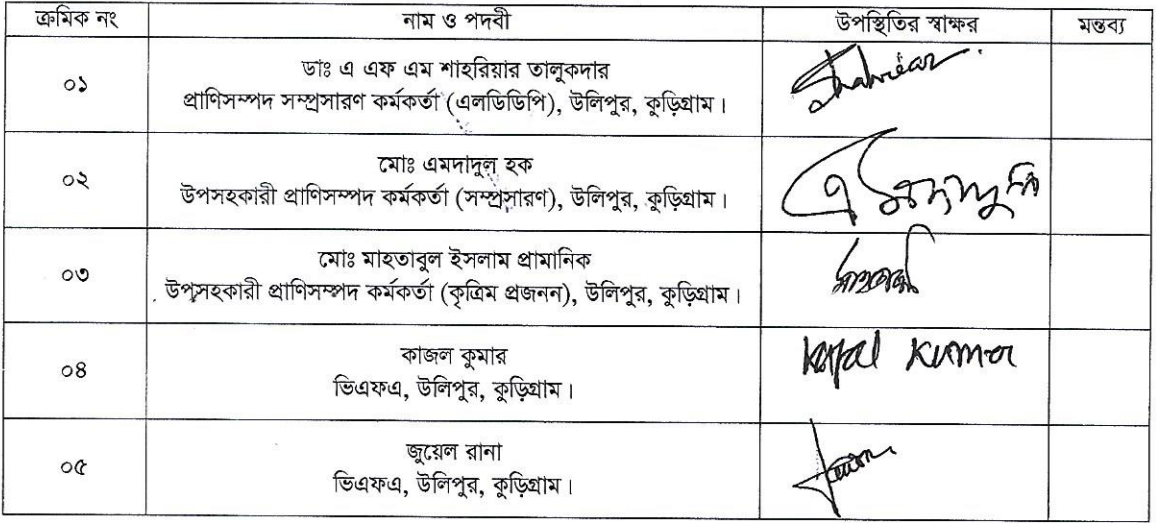 ক্রমিক নং নাম ও পদবী উপস্থিতির স্বাক্ষর মন্তব্য
০১ ডাঃ এ এফ এম শাহরিয়ার তালুকদার
প্রাণিসম্পদ সম্প্রসারণ কর্মকর্তা (এলডিডিপি), উলিপুর, কুড়িগ্রাম। Shahriear
০২ মোঃ এমদাদুল হক
উপসহকারী প্রাণিসম্পদ কর্মকর্তা (সম্প্রসারণ), উলিপুর, কুড়িগ্রাম।
০৩ মোঃ মাহতাবুল ইসলাম প্রামানিক
উপসহকারী প্রাণিসম্পদ কর্মকর্তা (কৃত্রিম প্রজনন), উলিপুর, কুড়িগ্রাম।
০৪ কাজল কুমার
ভিএফএ, উলিপুর, কুড়িগ্রাম। Kajal Kumar
০৫ জুয়েল রানা
ভিএফএ, উলিপুর, কুড়িগ্রাম।